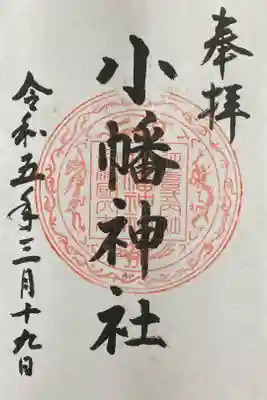 奉拝
小幡神社
令和五年三月十九日